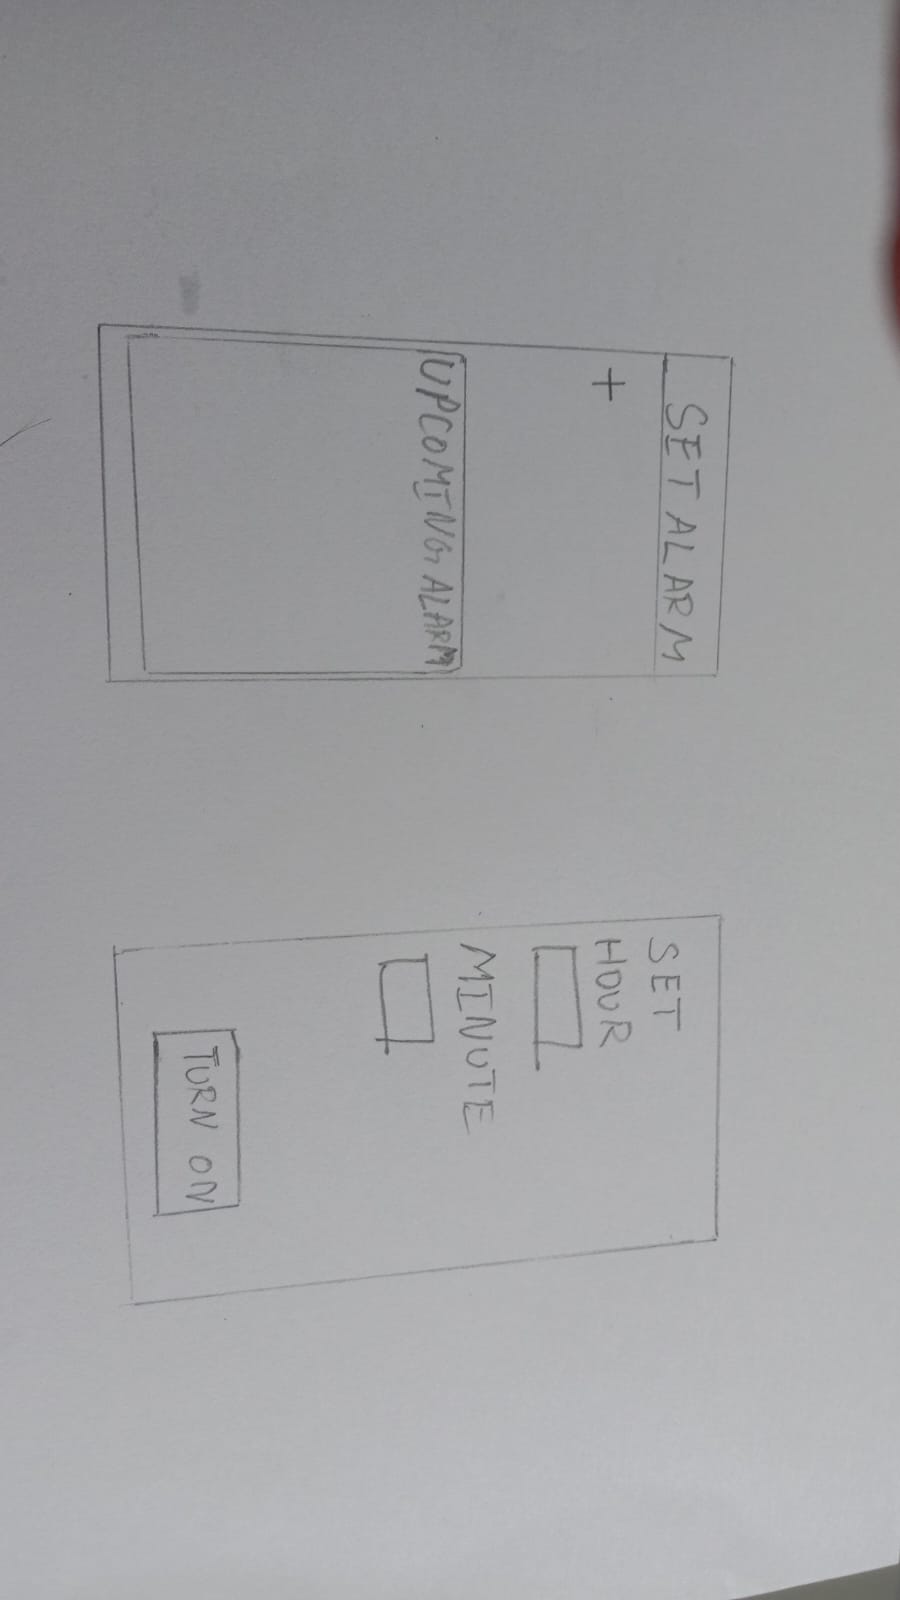 SET ALARM
+
UPCOMING ALARM
SET
HOUR
MINUTE
TURN ON